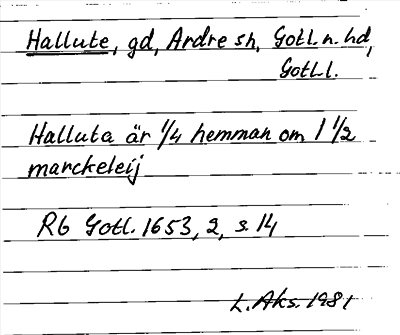 Hallute, gd, Ardre sn, Gotl. n. hd,
Gotl. l.
Halluta är 1/4 hemman om 1 1/2
marckeleij
Rb Gotl. 1653, 2, s. 14
L. Aks. 1981